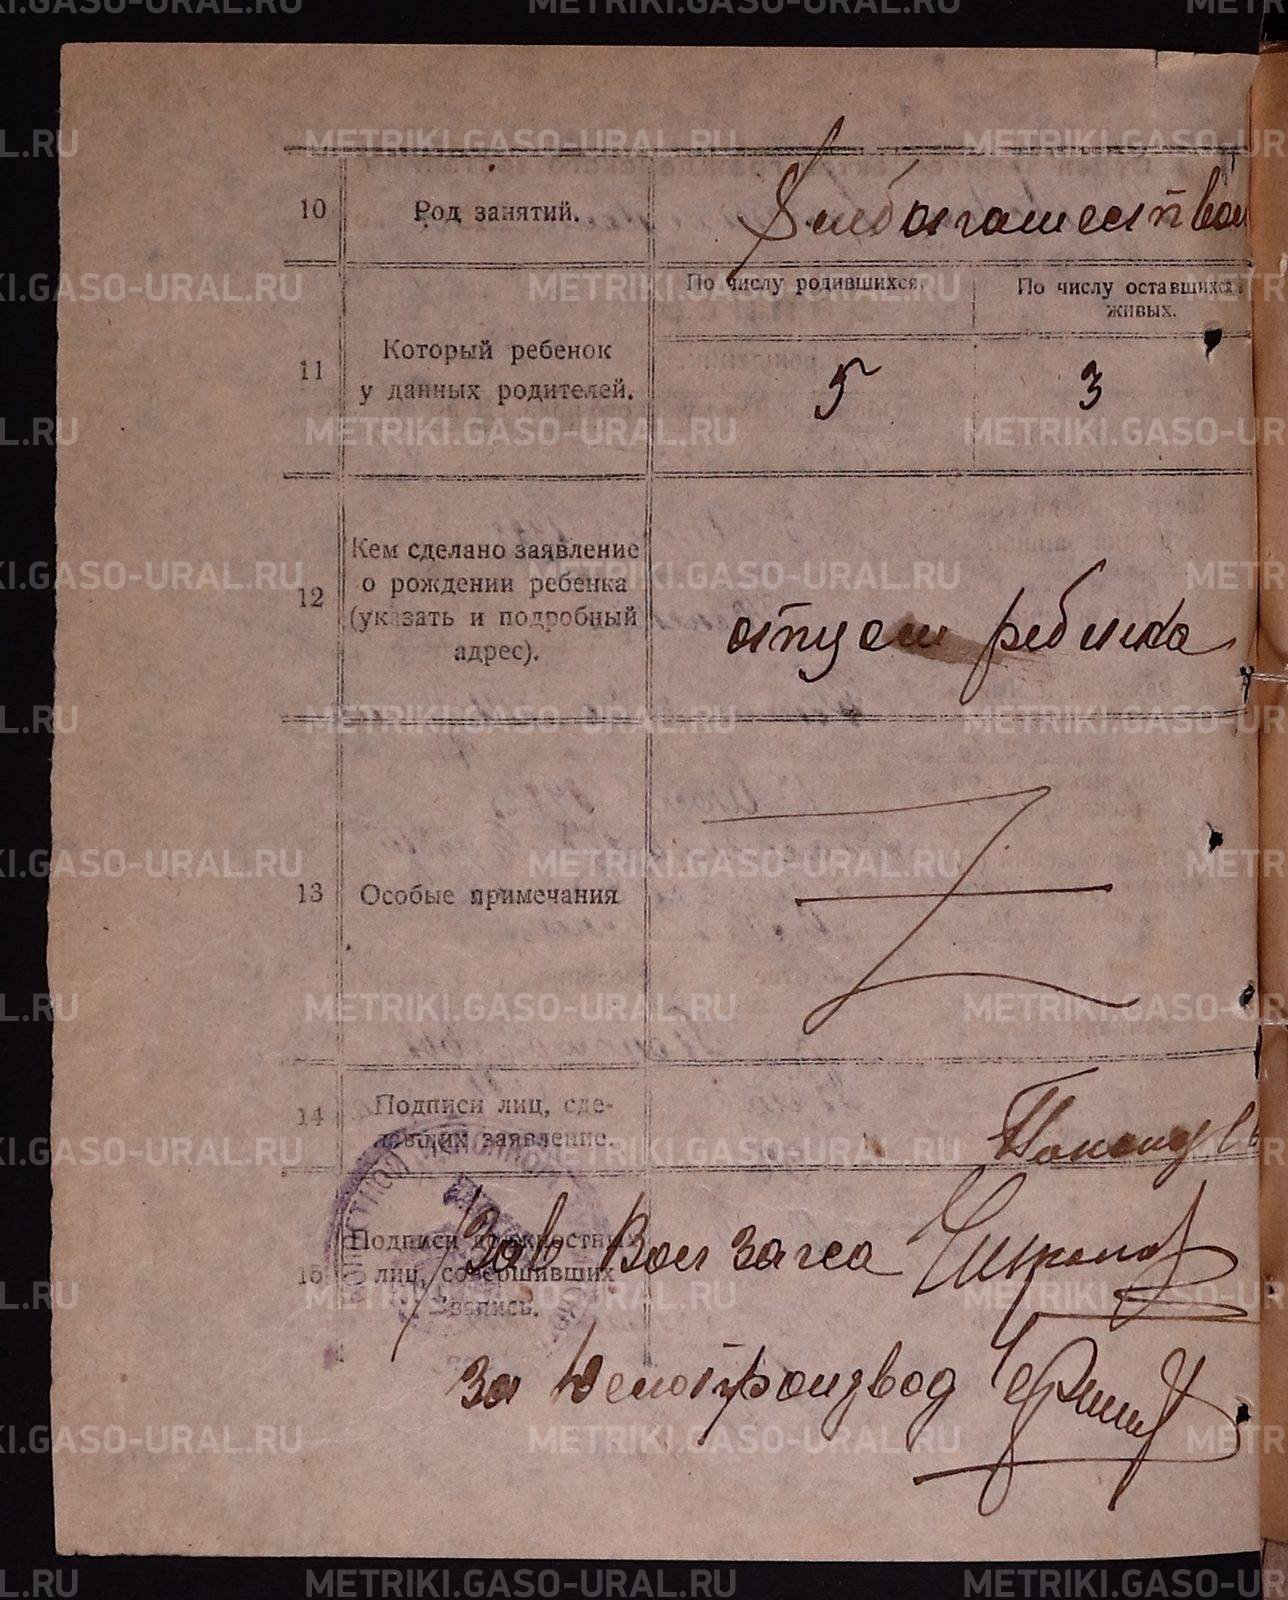 10 Род занятий. Хлебопашеством
11 Который ребенок у данных родителей.
По числу родившихся. По числу оставшихся живых.
5 3
12 Кем сделано заявление
о рождении ребенка
(указать и подробный
адрес).
отцом ребенка
13 Особые примечания
14 Подписи лиц, сде-
лавших заявление.
15 Подписи должностных
лиц, совершивших
запись.
Зав Вол загса
за Делопроизвод
METRIKI.GASO-URAL.RU